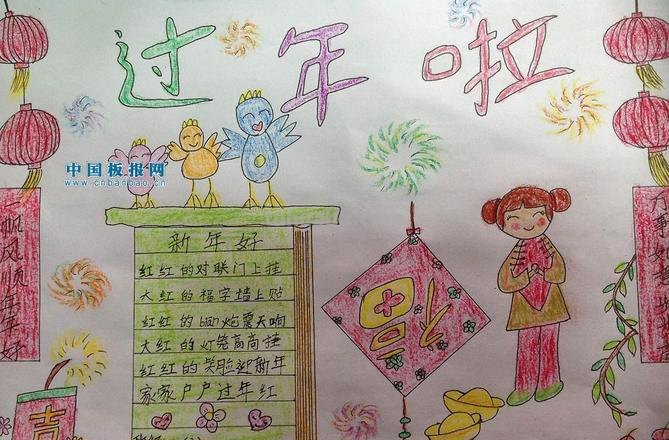 过年啦
中国板报网
www.cnbanbao.cn
帆风顺年年好
万事如
新年好
红红的对联门上挂
大红的福字墙上贴
红红的bao炮震天响
大红的灯笼高高挂
红红的笑脸迎新年
家家户户过年红
福
吉